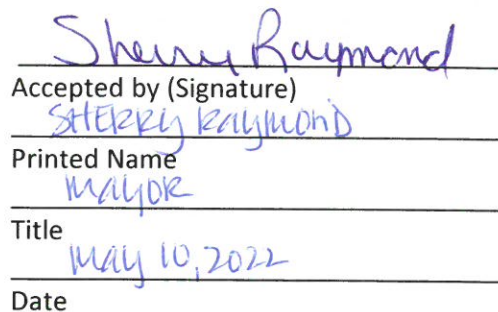 Sherry Raymond
Accepted by (Signature)
SHERRY RAYMOND
Printed Name
MAYOR
Title
May 10, 2022
Date